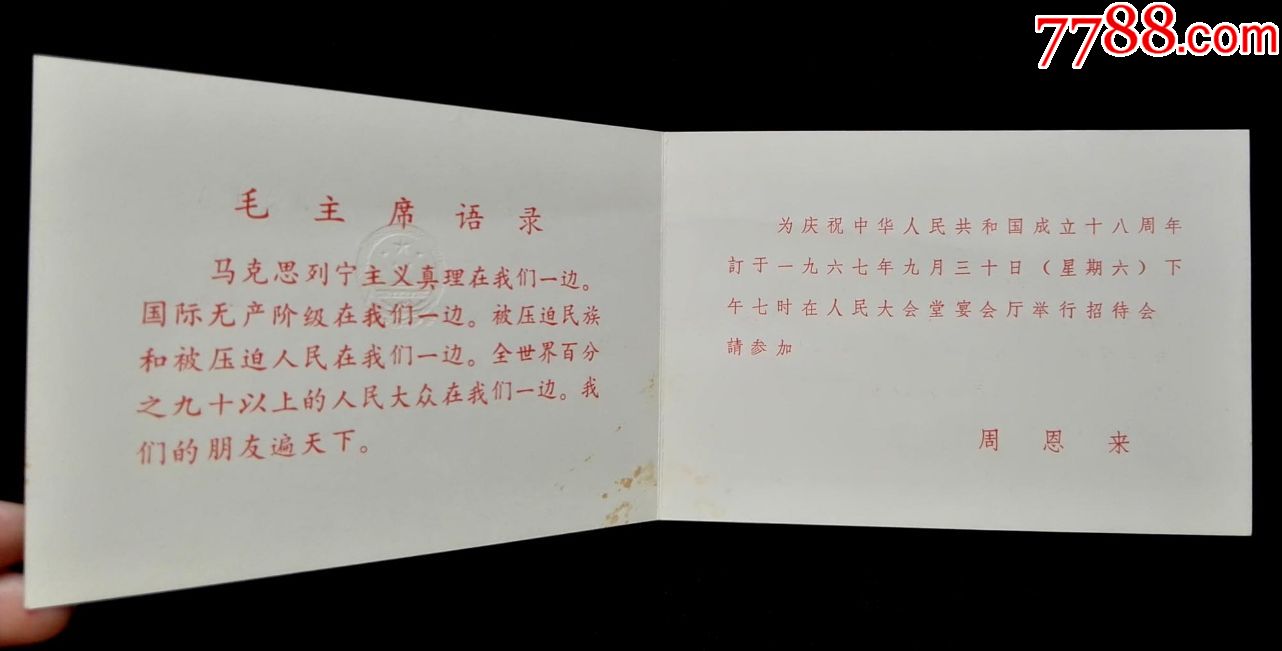 7788.com
毛主席语录
马克思列宁主义真理在我们一边。
国际无产阶级在我们一边。被压迫民族
和被压迫人民在我们一边。全世界百分
之九十以上的人民大众在我们一边。我
们的朋友遍天下。
为庆祝中华人民共和国成立十八周年
訂于一九六七年九月三十日（星期六）下
午七时在人民大会堂宴会厅举行招待会
請参加
周恩来